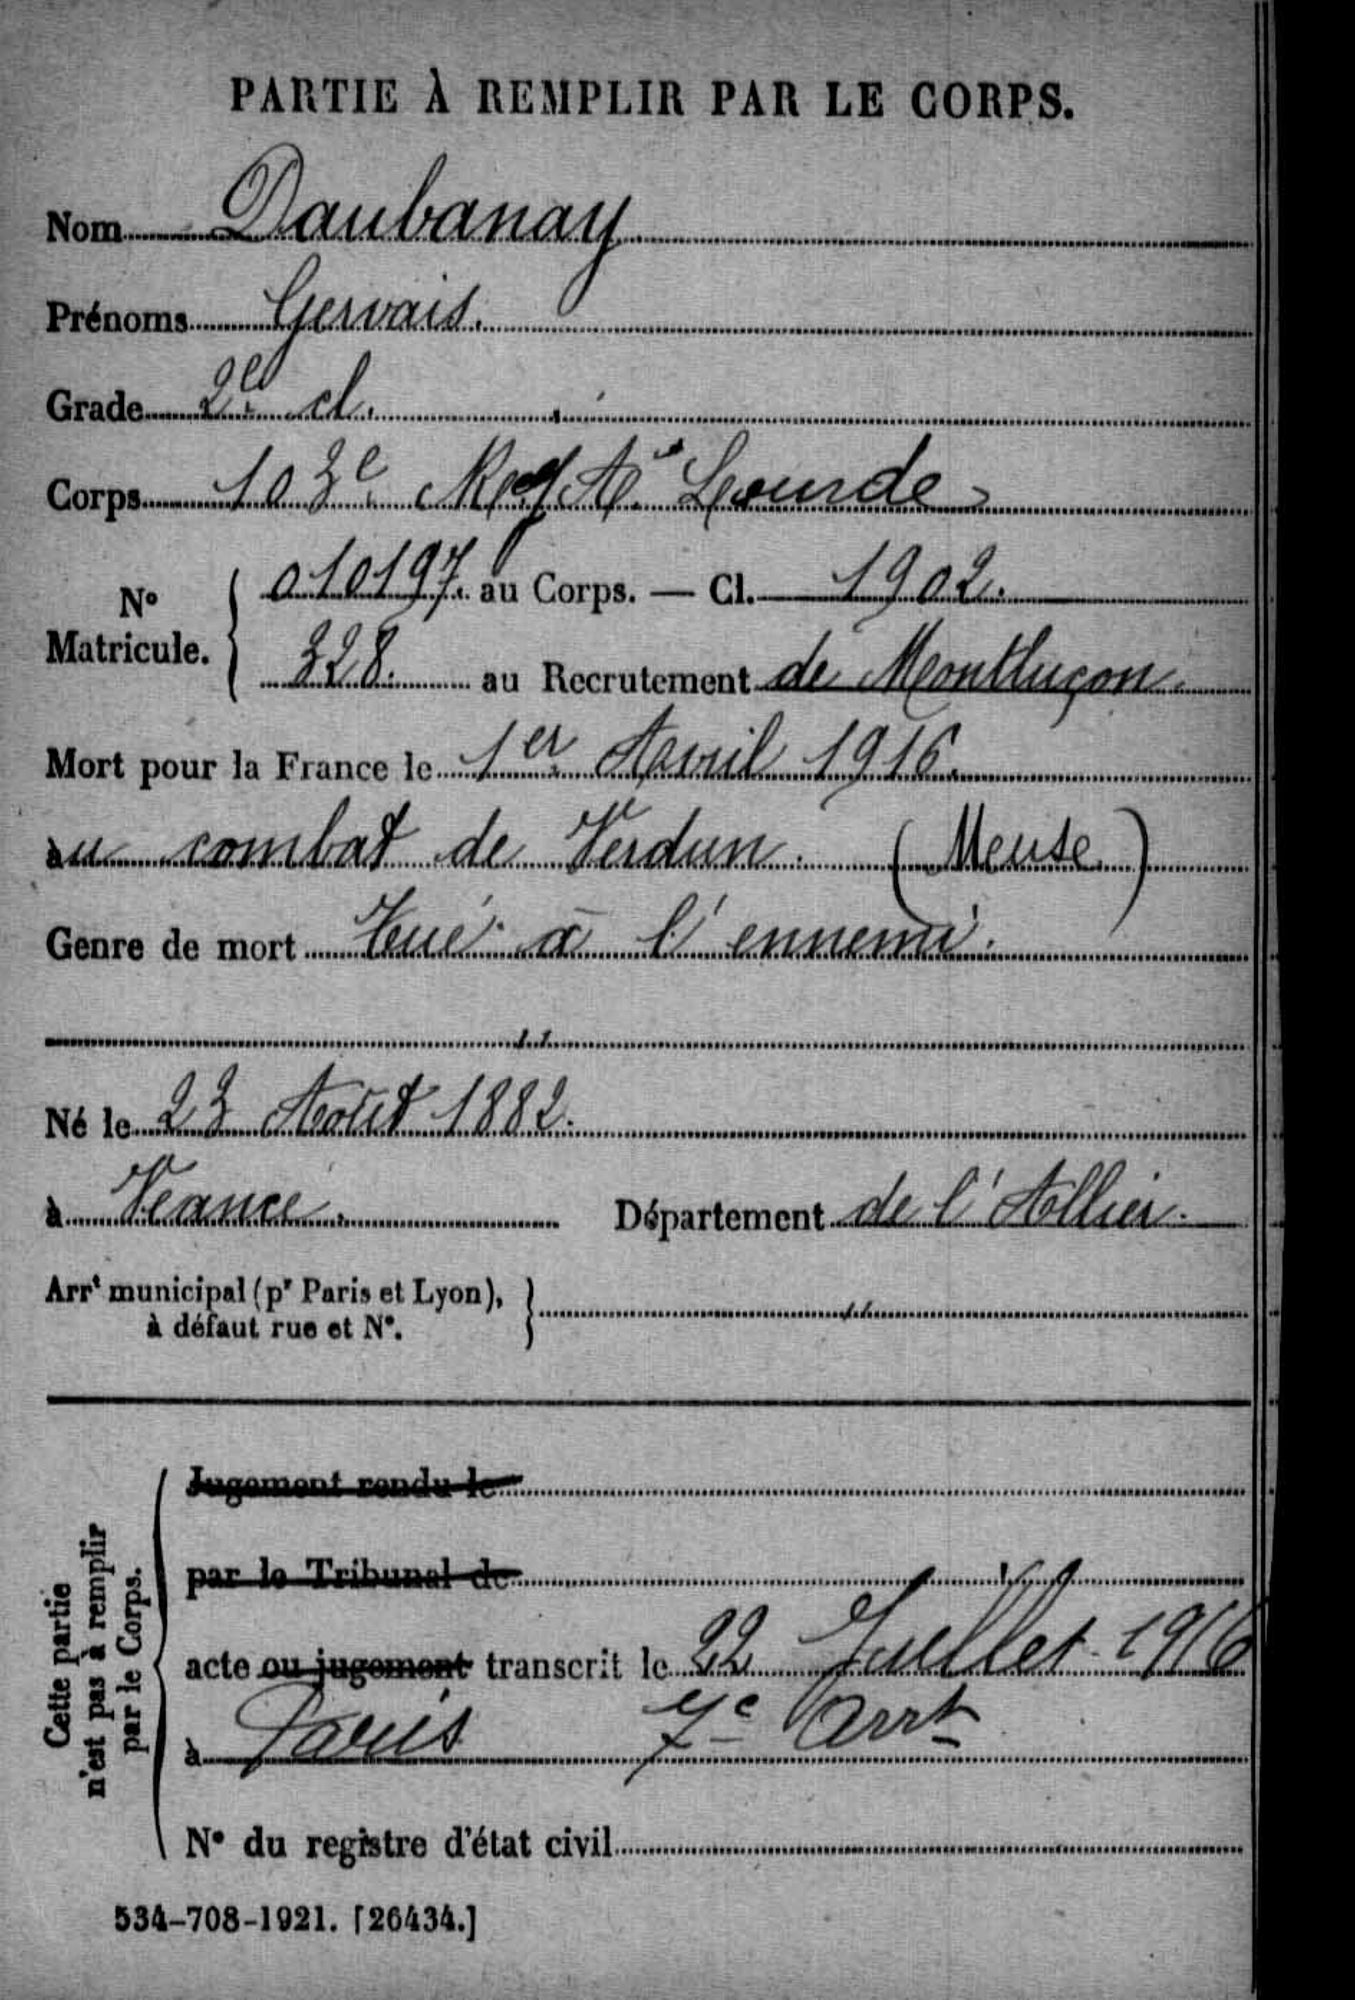 PARTIE À REMPLIR PAR LE CORPS.
Nom Daubanay
Prénoms Gervais.
Grade 2e cl.
Corps 103e Reg Aie Lourde
No Matricule. { 010197. au Corps. — Cl. 1902.
328. au Recrutement de Montluçon.
Mort pour la France le 1er Avril 1916.
au combat de Verdun. (Meuse)
Genre de mort Tué à l'ennemi.
Né le 23 Août 1882.
à Veauce. Département de l'Allier.
Arrt municipal (pr Paris et Lyon),
à défaut rue et No.
Cette partie n'est pas à remplir par le Corps.
Jugement rendu le
par le Tribunal de
acte ou jugement transcrit le 22 Juillet 1916
à Paris 7e Arrt
No du registre d'état civil
534-708-1921. [26434.]